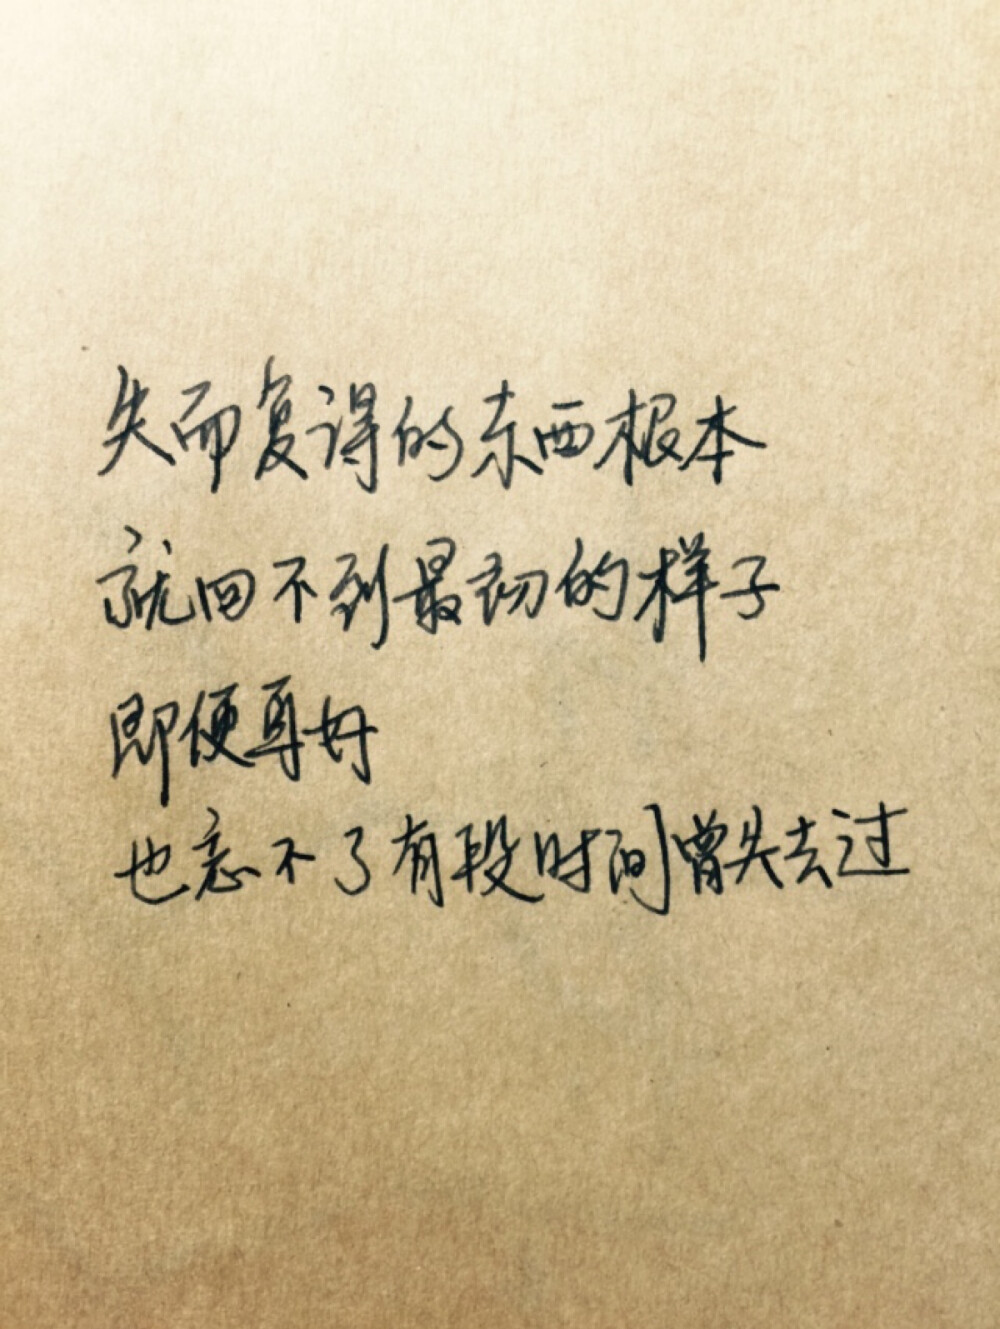 失而复得的东西根本
就回不到最初的样子
即便再好
也忘不了有段时间曾失去过